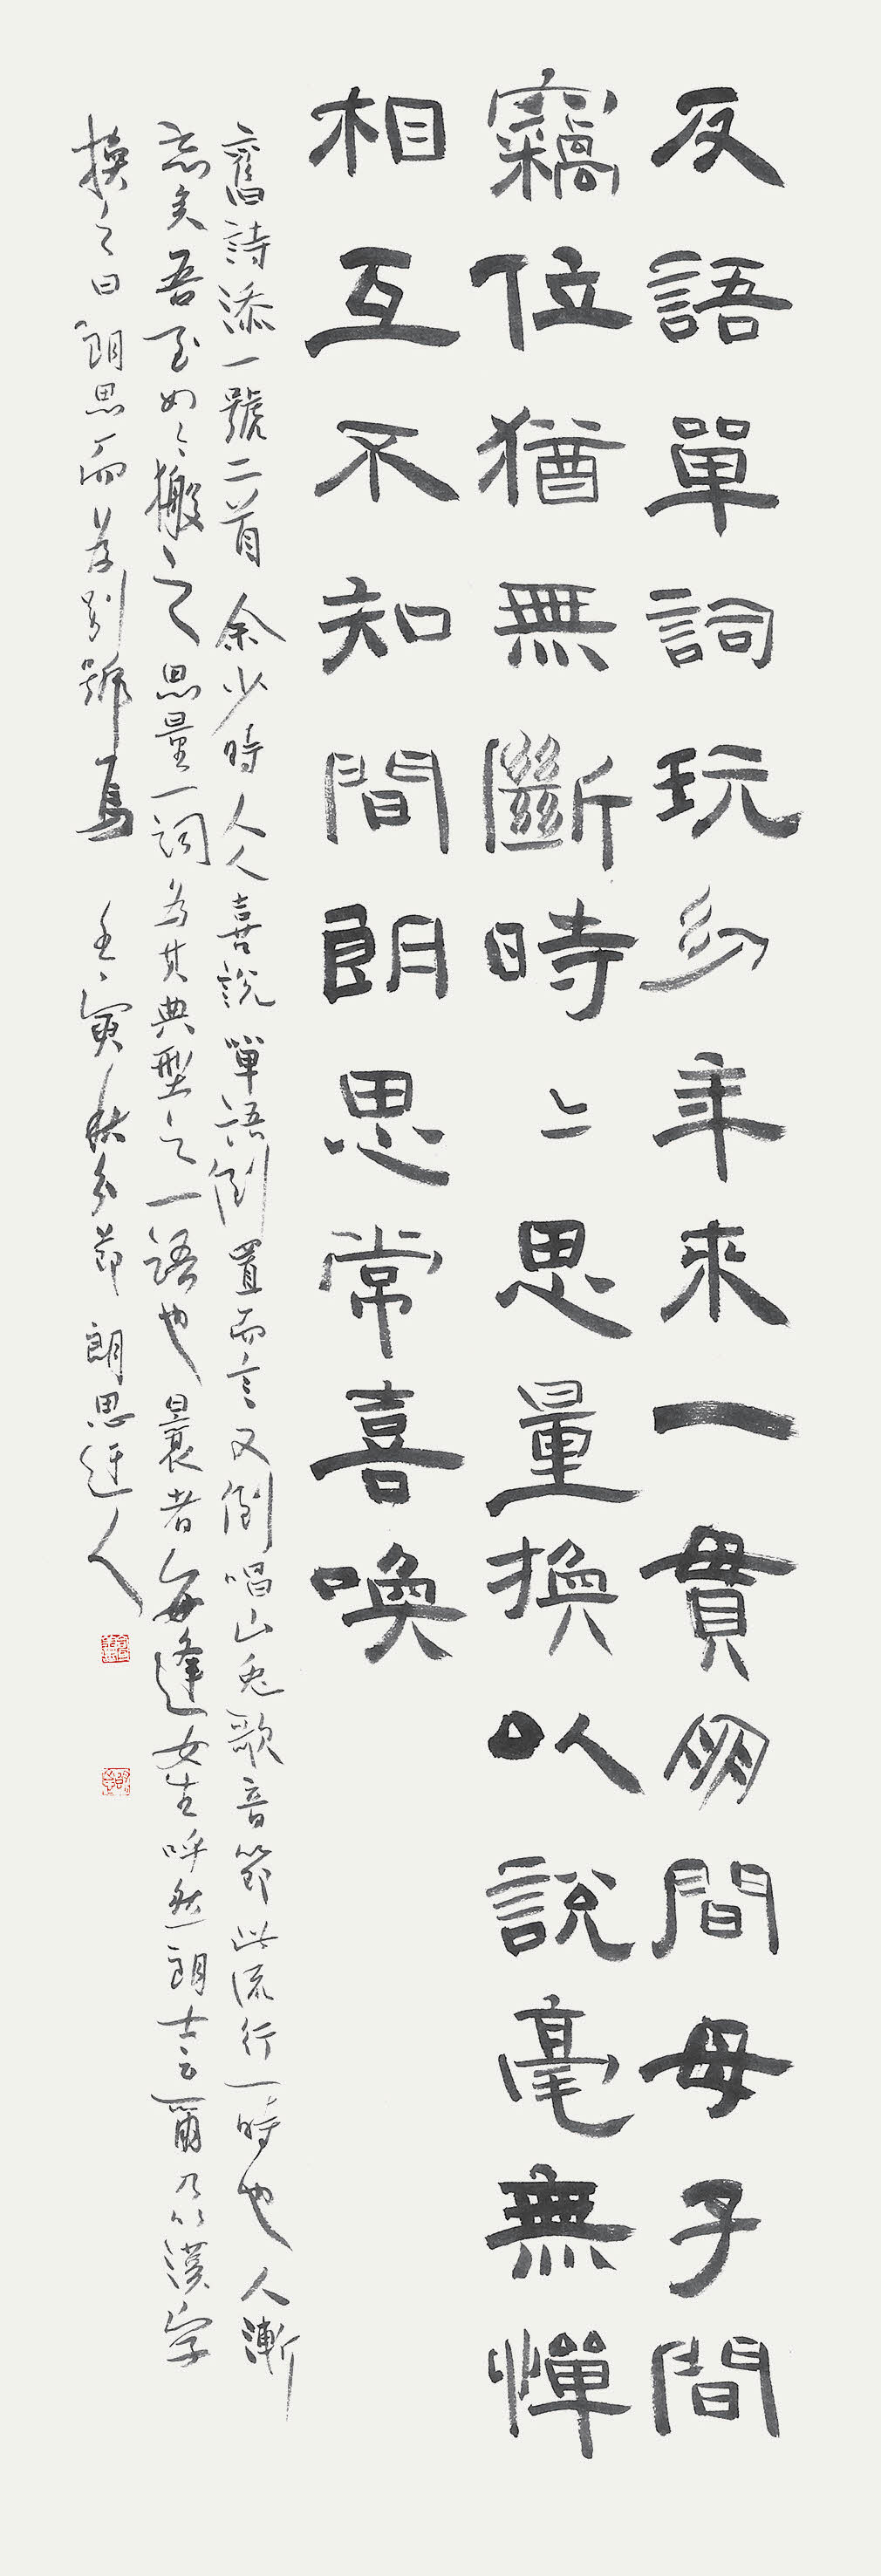 反語單詞玩幼年來一貫朋間母子間
竊位猶無斷時〻思量換以說毫無憚
相互不知間朗思常喜喚
舊詩添一號二首 余少時人人喜說單語倒置而言又倒唱山兔歌音節此流行一時也人漸
忘矣吾至如〻搬之思量一詞為其典型之一語也曩者每逢女生呼然朗士云爾乃以漢字
換之曰朗思而為別號焉 壬寅秋分節 朗思迂人